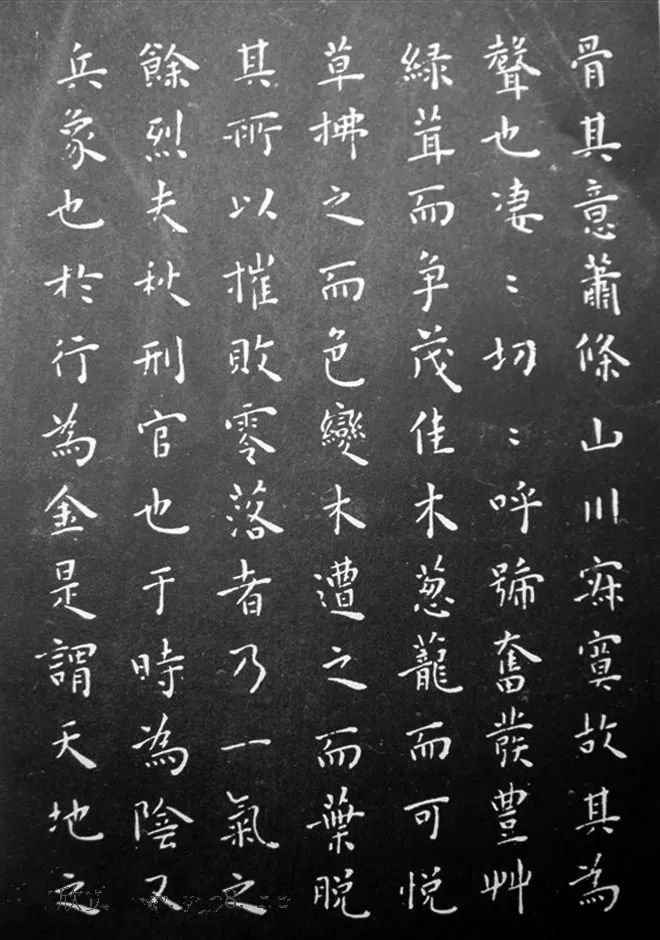 骨其意蕭條山川寂寞故其為
聲也凄〻切〻呼號奮發豐艸
緑茸而争茂佳木葱蘢而可悦
草拂之而色變木遭之而葉脱
其所以摧敗零落者乃一氣之
餘烈夫秋刑官也于時為陰又
兵象也於行為金是謂天地之